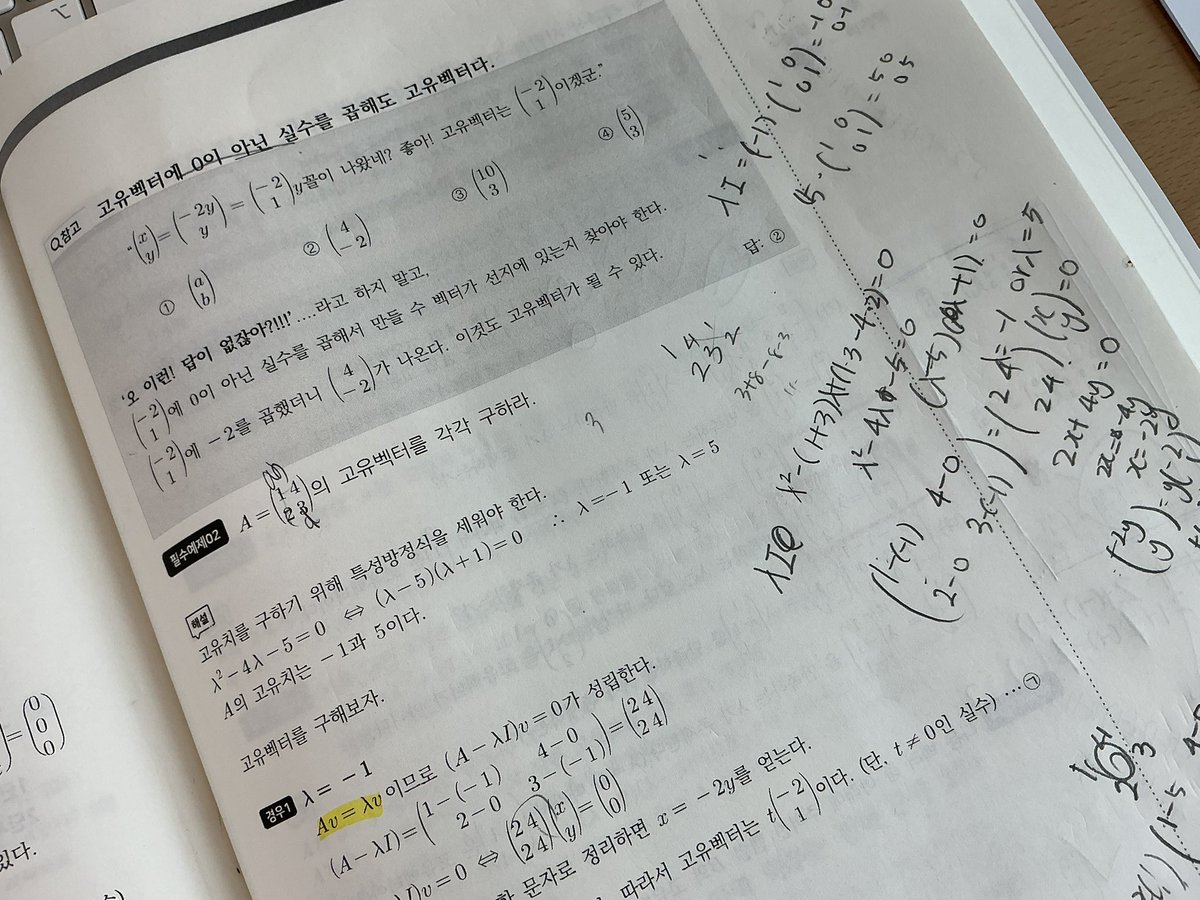 고유벡터에 0이 아닌 실수를 곱해도 고유벡터다.
Q.참고
"(x y) = (-2y y) = (-2 1)y꼴이 나왔네? 좋아! 고유벡터는 (-2 1)이겠군."
① (a b) ② (4 -2) ③ (10 3) ④ (5 3)
'오 이런! 답이 없잖아?!!!' ....라고 하지 말고,
(-2 1)에 0이 아닌 실수를 곱해서 만들 수 벡터가 선지에 있는지 찾아야 한다.
(-2 1)에 -2를 곱했더니 (4 -2)가 나온다. 이것도 고유벡터가 될 수 있다. 답: ②
필수예제02 A = (1 4 2 3)의 고유벡터를 각각 구하라.
해설
고유치를 구하기 위해 특성방정식을 세워야 한다.
λ² - 4λ - 5 = 0 ⇔ (λ - 5)(λ + 1) = 0 ∴ λ = -1 또는 λ = 5
A의 고유치는 -1과 5이다.
고유벡터를 구해보자.
경우1 λ = -1
Av = λv 이므로 (A - λI)v = 0가 성립한다.
(A - λI) = (1-(-1) 4-0 2-0 3-(-1)) = (2 4 2 4)
I)v = 0 ⇔ (2 4 2 4)(x y) = (0 0)
한 문자로 정리하면 x = -2y를 얻는다.
따라서 고유벡터는 t(-2 1)이다. (단, t ≠ 0인 실수) ...㉠
= (0 0 0)
있다.
λI = (-1)(1 0 0 1) = -1 0 0 -1
5·(1 0 0 1) = 5 0 0 5
1 4
2 3
3
λ² - (1+3)λ + (1·3 - 4·2) = 0
λ² - 4λ - 5 = 0
(λ-5)(λ+1) = 0
λ = -1 or λ = 5
(1-(-1) 4-0 2-0 3-(-1)) = (2 4 2 4)(x y) = 0
2x + 4y = 0
2x = -4y
x = -2y
(-2y y) = y(-2